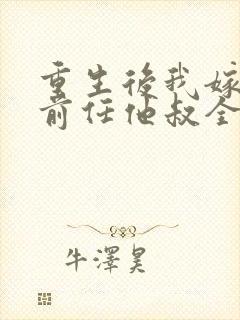 重生後我嫁
前任他叔全
牛澤昊